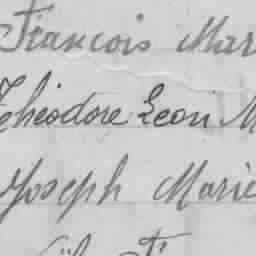 François Mar
Théodore Léon M
Joseph Marie